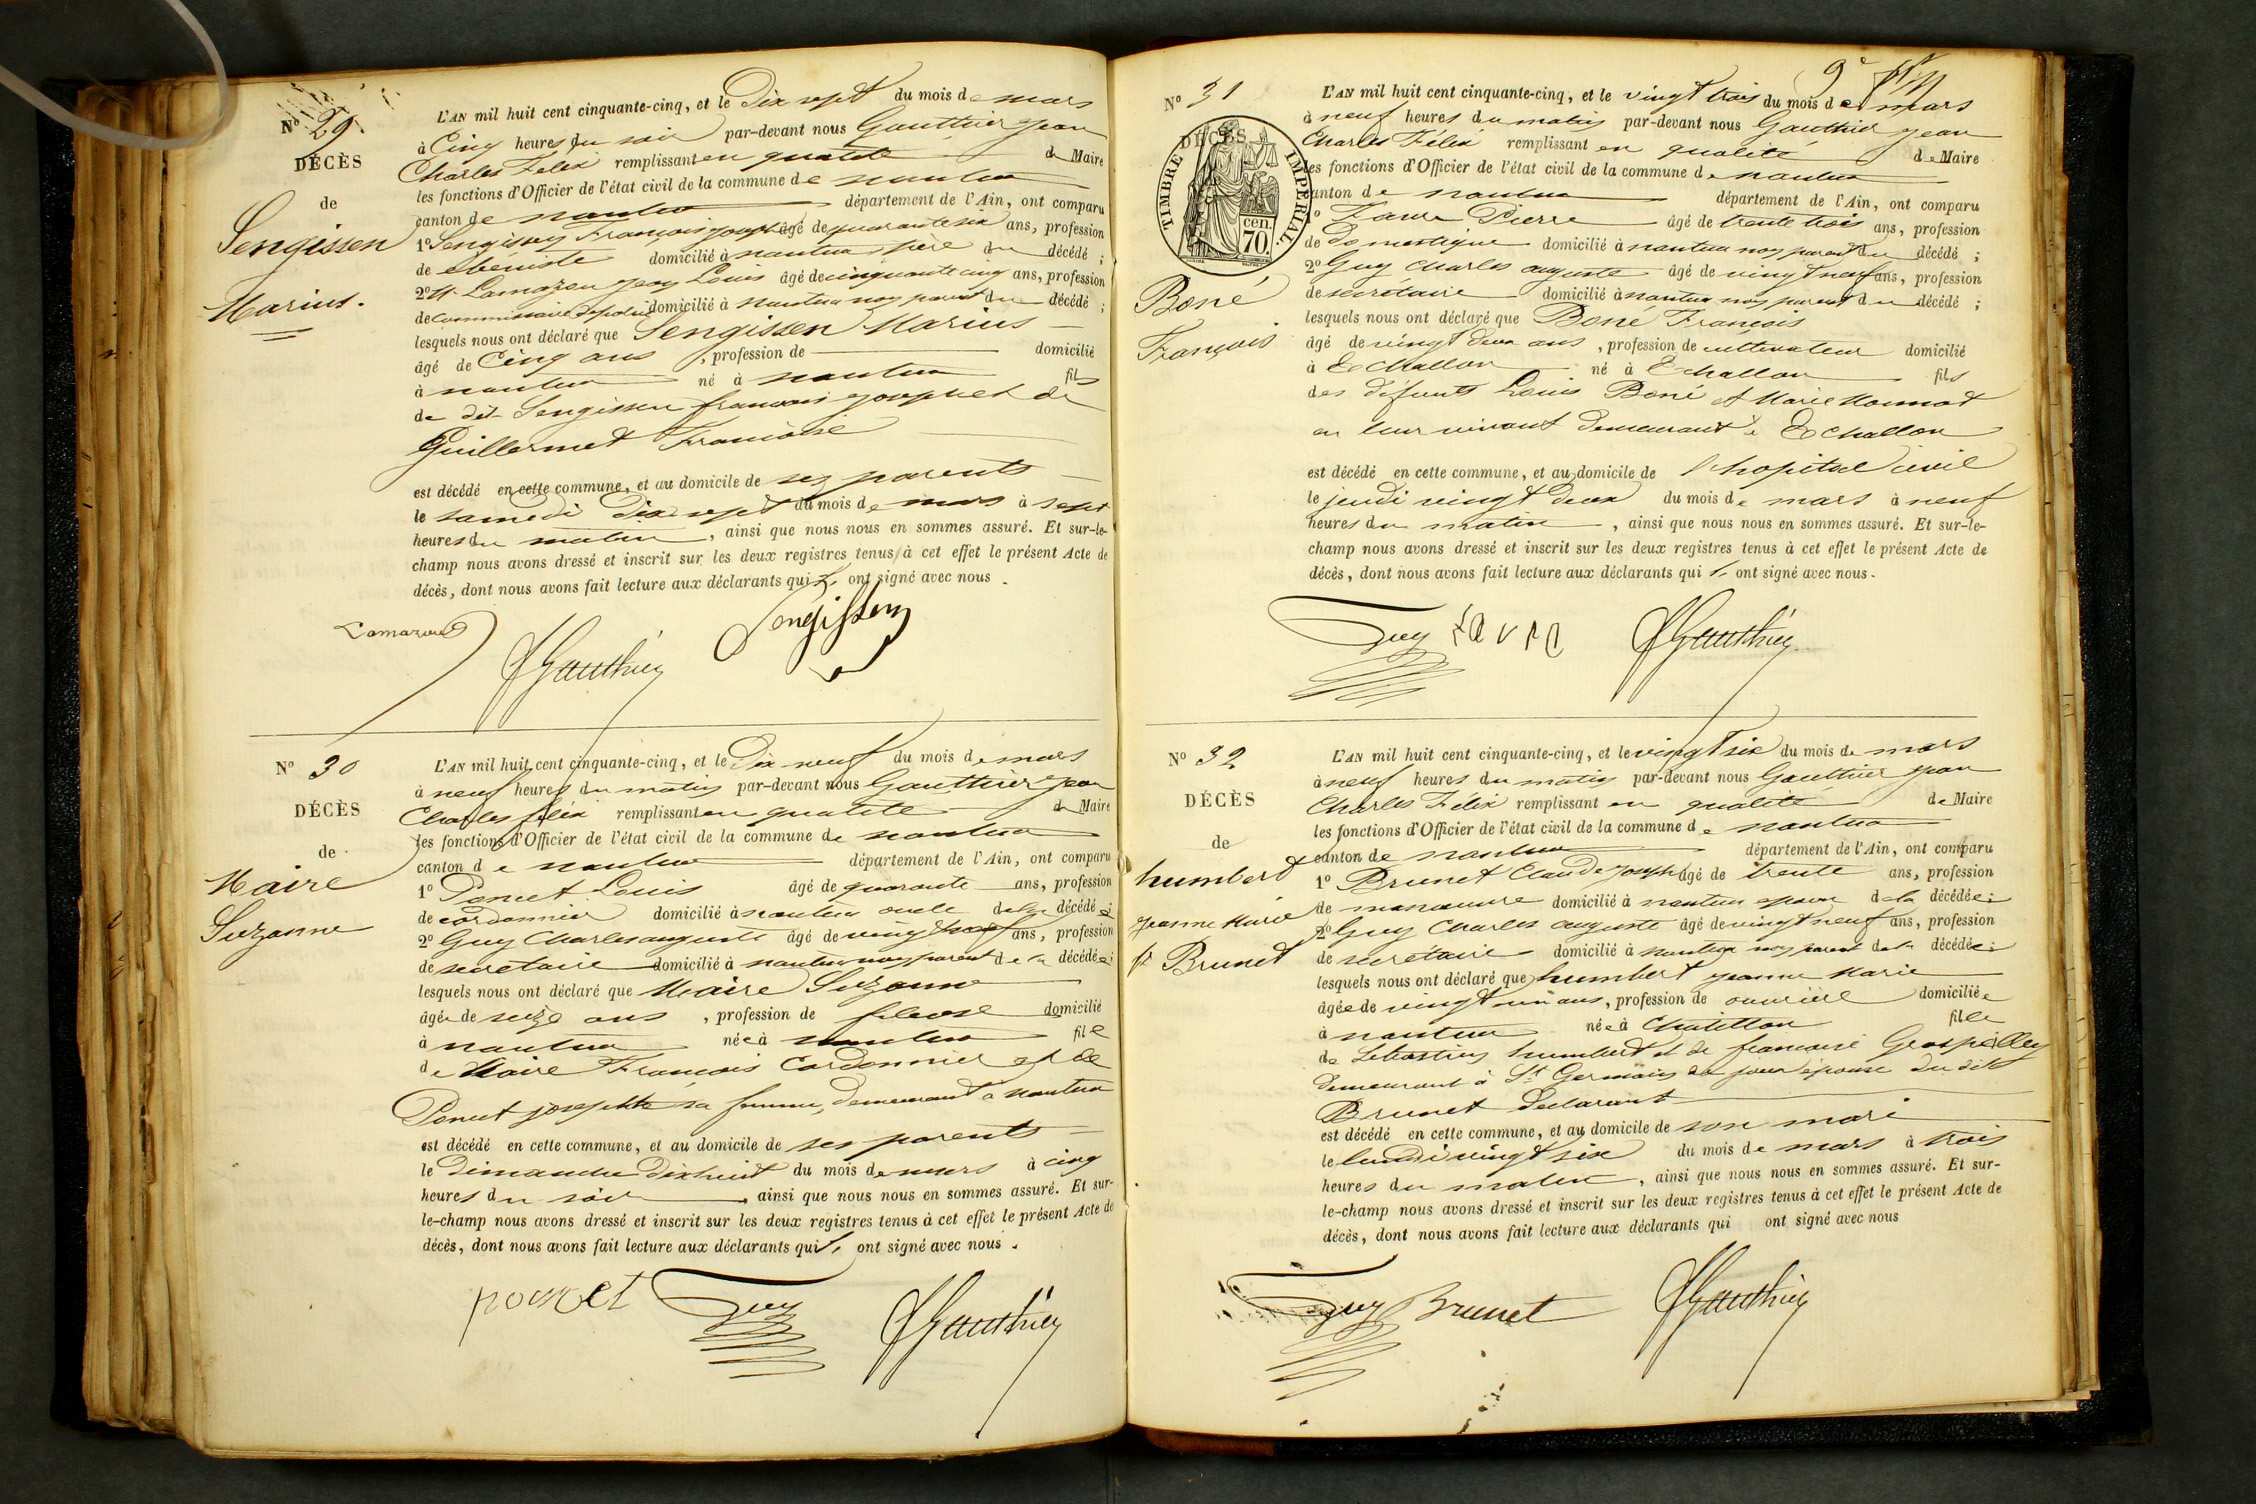 Nº 29
DÉCÈS
de
Sengissen
Marius.
L'AN mil huit cent cinquante-cinq, et le Dix sept du mois de mars
à Cinq heures du soir par-devant nous Gauthier Jean
Charles Félix remplissant en qualité de Maire
les fonctions d'Officier de l'état civil de la commune de nantua
canton de nantua département de l'Ain, ont comparu
1º Sengissen François Joseph âgé de quarante six ans, profession
de ébéniste domicilié à nantua père du décédé ;
2º Lamazou Jean Louis âgé de cinquante cinq ans, profession
de commissaire de police domicilié à nantua non parent du décédé ;
lesquels nous ont déclaré que Sengissen Marius
âgé de Cinq ans , profession de domicilié
à nantua né à nantua fils
de dit Sengissen francois Joseph et de
Guillermet Francoise
est décédé en cette commune, et au domicile de ses parents
le samedi Dix sept du mois de mars à sept
heures du matin , ainsi que nous nous en sommes assuré. Et sur-le-
champ nous avons dressé et inscrit sur les deux registres tenus à cet effet le présent Acte de
décès, dont nous avons fait lecture aux déclarants qui ont signé avec nous .
Lamazou Gauthier Sengissen
Nº 30
DÉCÈS
de
Maire
Suzanne
L'AN mil huit cent cinquante-cinq, et le Dix neuf du mois de mars
à neuf heures du matin par-devant nous Gauthier Jean
Charles félix remplissant en qualité de Maire
les fonctions d'Officier de l'état civil de la commune de nantua
canton de nantua département de l'Ain, ont comparu
1º Poncet Louis âgé de quarante ans, profession
de cordonnier domicilié à nantua oncle de la décédée ;
2º Guy Charles auguste âgé de vingt neuf ans, profession
de secretaire domicilié à nantua non parent de la décédée ;
lesquels nous ont déclaré que Maire Suzanne
âgée de seize ans , profession de fileuse domicilié
à nantua née à nantua file
de Maire Francois Cordonnier et de
Poncet josephte sa femme, demeurant a nantua
est décédé en cette commune, et au domicile de ses parents
le dimanche Dixhuit du mois de mars à cinq
heures du soir , ainsi que nous nous en sommes assuré. Et sur-
le-champ nous avons dressé et inscrit sur les deux registres tenus à cet effet le présent Acte de
décès, dont nous avons fait lecture aux déclarants qui ont signé avec nous .
poncet Guy Gauthier
9e
Nº 31
DÉCÈS
TIMBRE IMPERIAL
70 cen.
Boné
François
L'AN mil huit cent cinquante-cinq, et le vingt trois du mois de mars
à neuf heures du matin par-devant nous Gauthier Jean
Charles Félix remplissant en qualité de Maire
les fonctions d'Officier de l'état civil de la commune de nantua
canton de nantua département de l'Ain, ont comparu
1º Favre Pierre âgé de trente trois ans, profession
de domestique domicilié à nantua non parent du décédé ;
2º Guy Charles auguste âgé de vingt neuf ans, profession
de secretaire domicilié à nantua non parent du décédé ;
lesquels nous ont déclaré que Boné François
âgé de vingt deux ans , profession de cultivateur domicilié
à Echallon né à Echallon fils
des défunts Louis Boné et Marie
en leur vivant demeurant à Echallon
est décédé en cette commune, et au domicile de l'hopital civil
le jeudi vingt deux du mois de mars à neuf
heures du matin , ainsi que nous nous en sommes assuré. Et sur-le-
champ nous avons dressé et inscrit sur les deux registres tenus à cet effet le présent Acte de
décès, dont nous avons fait lecture aux déclarants qui ont signé avec nous .
Guy Gauthier
Nº 32
DÉCÈS
de
humbert
Jeanne Marie
fe Brunet
L'AN mil huit cent cinquante-cinq, et le vingt six du mois de mars
à neuf heures du matin par-devant nous Gauthier Jean
Charles Félix remplissant en qualité de Maire
les fonctions d'Officier de l'état civil de la commune de nantua
canton de nantua département de l'Ain, ont comparu
1º Brunet Claude Joseph âgé de trente ans, profession
de manœuvre domicilié à nantua epoux de la décédée ;
2º Guy Charles auguste âgé de vingt neuf ans, profession
de secrétaire domicilié à nantua non parent de la décédée ;
lesquels nous ont déclaré que humbert jeanne Marie
âgée de vingt un ans , profession de ouvrière domiciliée
à nantua née à Chatillon fille
de Sébastien humbert et de francoise Grospelley
demeurant à St Germain de joux épouse du dit
Brunet declarant
est décédé en cette commune, et au domicile de son mari
le lundi vingt six du mois de mars à trois
heures du matin , ainsi que nous nous en sommes assuré. Et sur-
le-champ nous avons dressé et inscrit sur les deux registres tenus à cet effet le présent Acte de
décès, dont nous avons fait lecture aux déclarants qui ont signé avec nous
Guy Brunet Gauthier